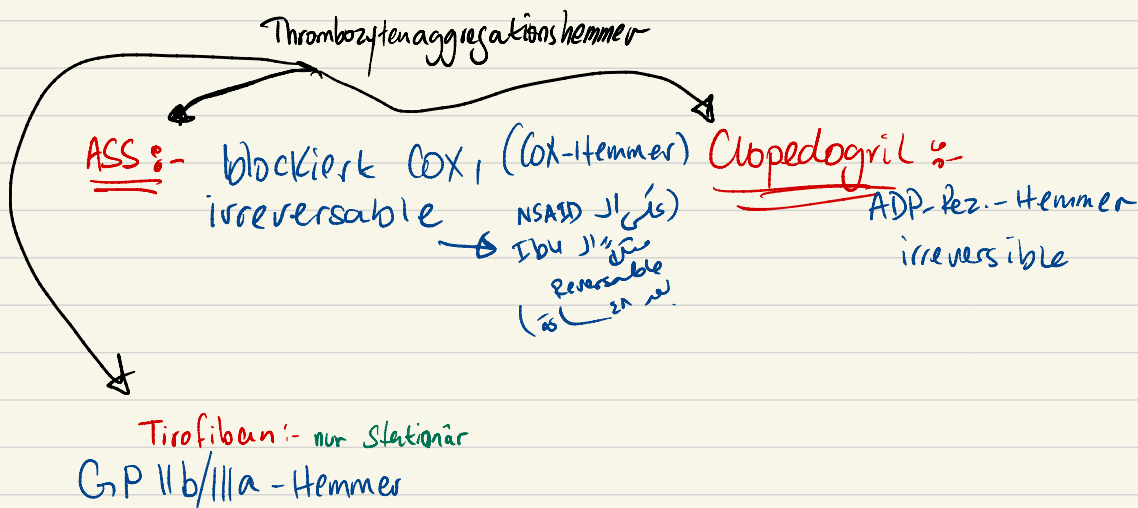 Thrombozytenaggregationshemmer
ASS :-
blockiert COX, (Cox-Hemmer)
irreversable
NSAID
Ibu
Reversable
Clopedogril :-
ADP-Rez.-Hemmer
irreversible
Tirofiban :- nur Stationär
GP IIb/IIIa - Hemmer